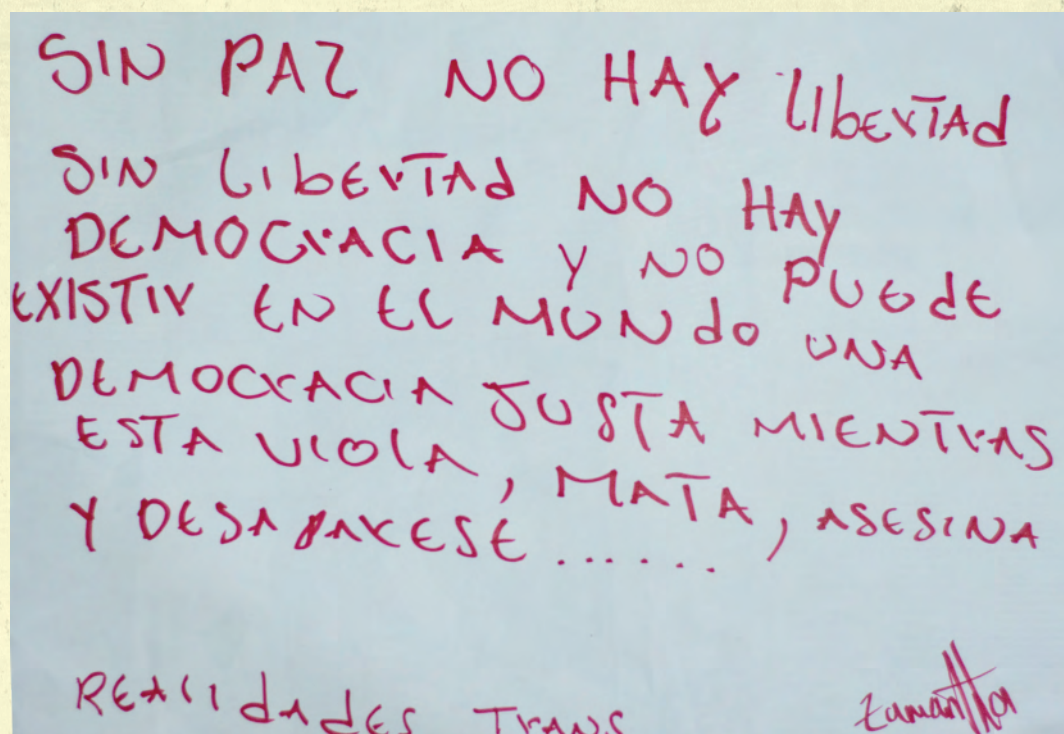 SIN PAZ NO HAY LIbERTAd
SIN LIbERTAd NO HAY
DEMOCRACIA Y NO PUEdE
EXISTIR EN EL MUNdO UNA
DEMOCRACIA JUSTA MIENTRAS
ESTA VIOLA, MATA, ASESINA
Y DESAPARESE ......
REALIdAdES TRANS